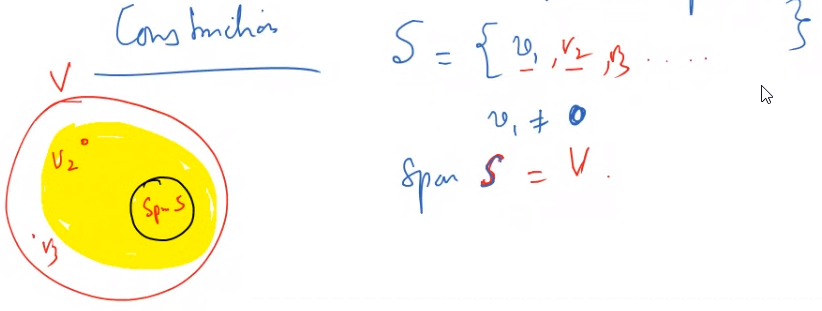 Construction
S = { v₁, v₂, v₃ ..... }
v₁ ≠ 0
Span S = V.
V
v₂
Span S
v₃